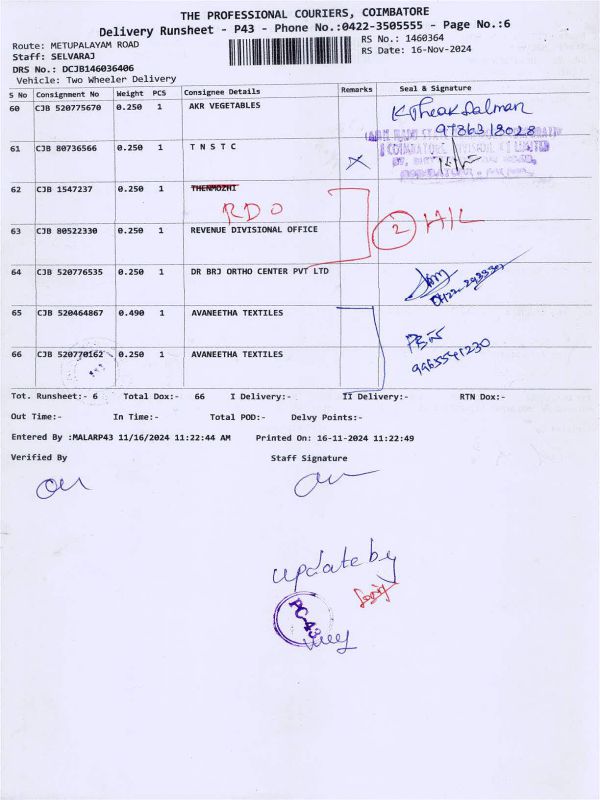 THE PROFESSIONAL COURIERS, COIMBATORE
Delivery Runsheet - P43 - Phone No.:0422-3505555 - Page No.:6
Route: METUPALAYAM ROAD
RS No.: 1460364
Staff: SELVARAJ
RS Date: 16-Nov-2024
DRS No.: DCJB146036406
Vehicle: Two Wheeler Delivery
S No Consignment No Weight PCS Consignee Details Remarks Seal & Signature
60 CJB 520775670 0.250 1 AKR VEGETABLES
9786318028
61 CJB 80736566 0.250 1 T N S T C
62 CJB 1547237 0.250 1 THENMOZHI
RDO
63 CJB 80522330 0.250 1 REVENUE DIVISIONAL OFFICE
2
64 CJB 520776535 0.250 1 DR BRJ ORTHO CENTER PVT LTD
65 CJB 520464867 0.490 1 AVANEETHA TEXTILES
66 CJB 520770162 0.250 1 AVANEETHA TEXTILES
9965541230
Tot. Runsheet:- 6 Total Dox:- 66 I Delivery:- II Delivery:- RTN Dox:-
Out Time:- In Time:- Total POD:- Delvy Points:-
Entered By :MALARP43 11/16/2024 11:22:44 AM Printed On: 16-11-2024 11:22:49
Verified By Staff Signature
update by
PC-43